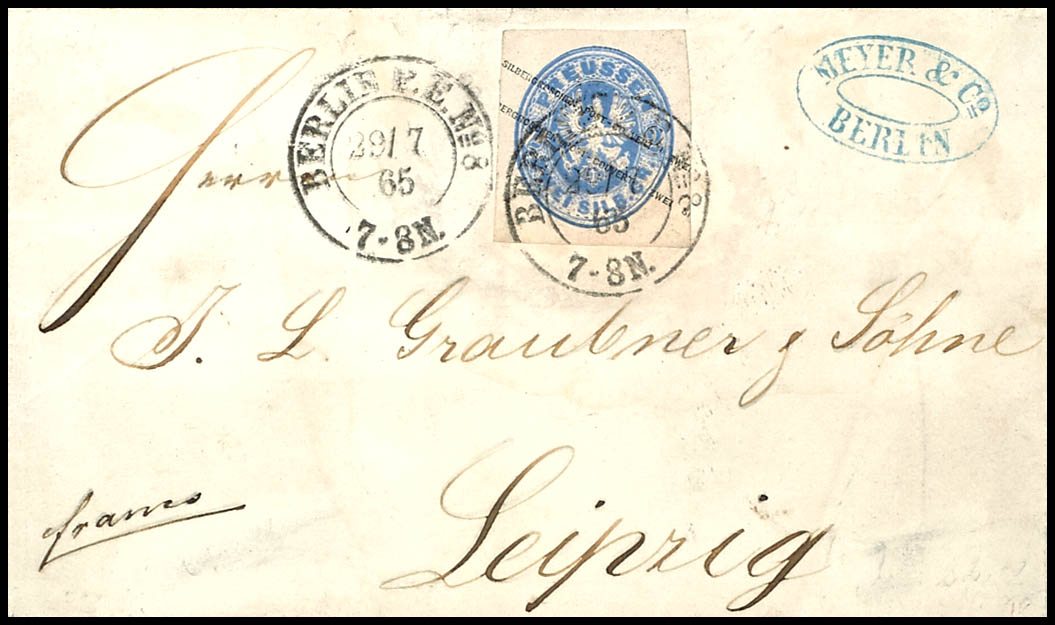 BERLIN P.E. No 8
29/7
65
7-8N.
PREUSSEN
ZWEI SILB.
65
7-8N.
MEYER & Co
BERLIN
Herren
J. L. Graubner & Söhne
franco
Leipzig